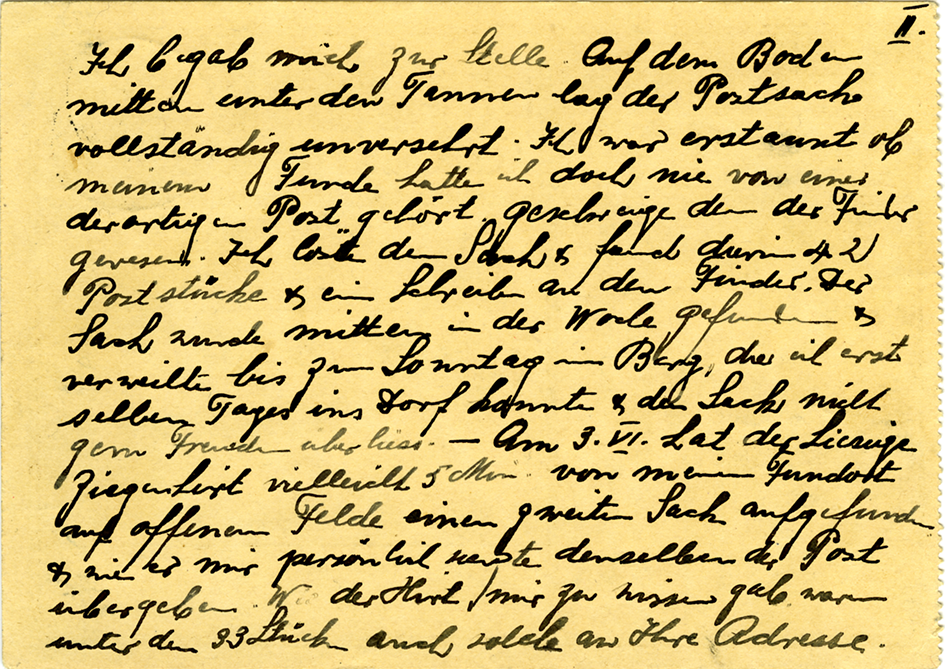 II.
Ich begab mich zur Stelle. Auf dem Boden
mitten unter den Tannen lag der Postsache
vollständig unversehrt. Ich war erstaunt ob
meinem Funde hatte ich doch nie von einer
derartigen Post gehört, geschweige denn der Finder
gewesen. Ich löste den Sack & fand darin 42
Poststücke & ein Schreiben an den Finder. Der
Sack wurde mitten in der Woche gefunden &
verweilte bis zum Sonntag im Berg, da ich erst
selben Tages ins Dorf konnte & den Sack nicht
gern Fremden überliess. — Am 3. VI. hat der hiesige
Ziegenhirt vielleicht 5 Min. von meinem Fundort
auf offenem Felde einen zweiten Sack aufgefunden
& wie er mir persönlich sagte denselben der Post
übergeben. Wie der Hirt mir zu wissen gab waren
unter den 33 Stücken auch solche an Ihre Adresse.